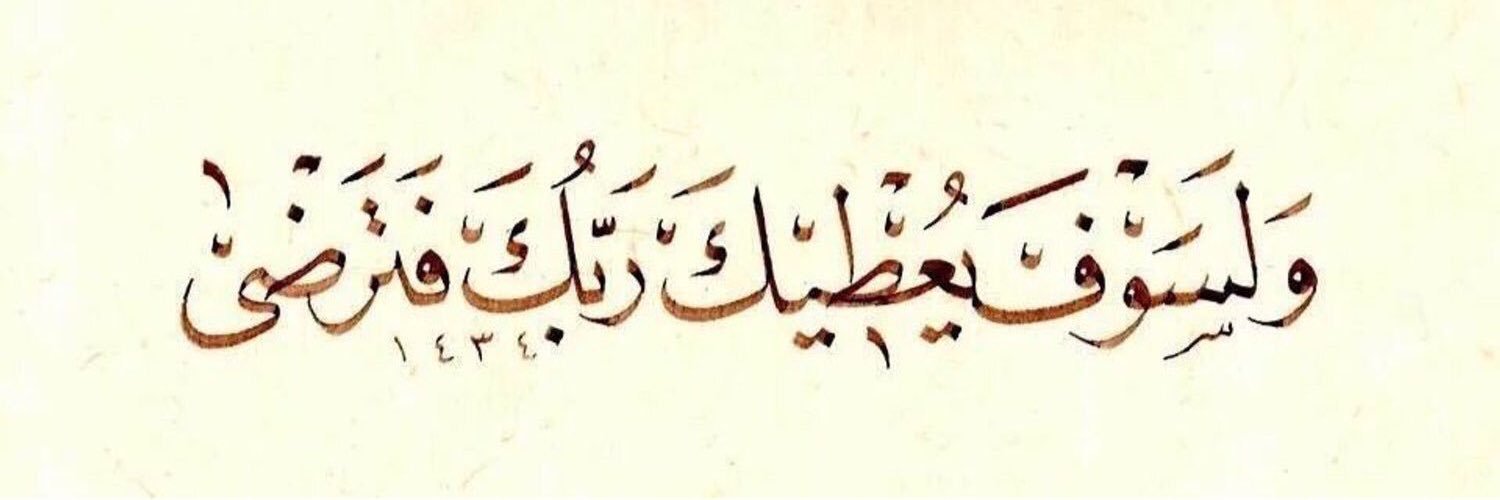 وَلَسَوْفَ يُعْطِيكَ رَبُّكَ فَتَرْضَىٰ
١٤٣٤